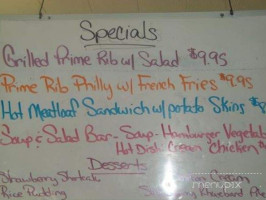 Specials
Grilled Prime Rib w/ Salad $9.95
Prime Rib Philly w/ French Fries $9.95
Hot Meatloaf Sandwich w/ potato Skins $8
Soup & Salad Bar - Soup - Hamburger Vegetab
Hot Dish Cream Chicken
Desserts
Strawberry Shortcak
Cream
Rice Pudding
menupix